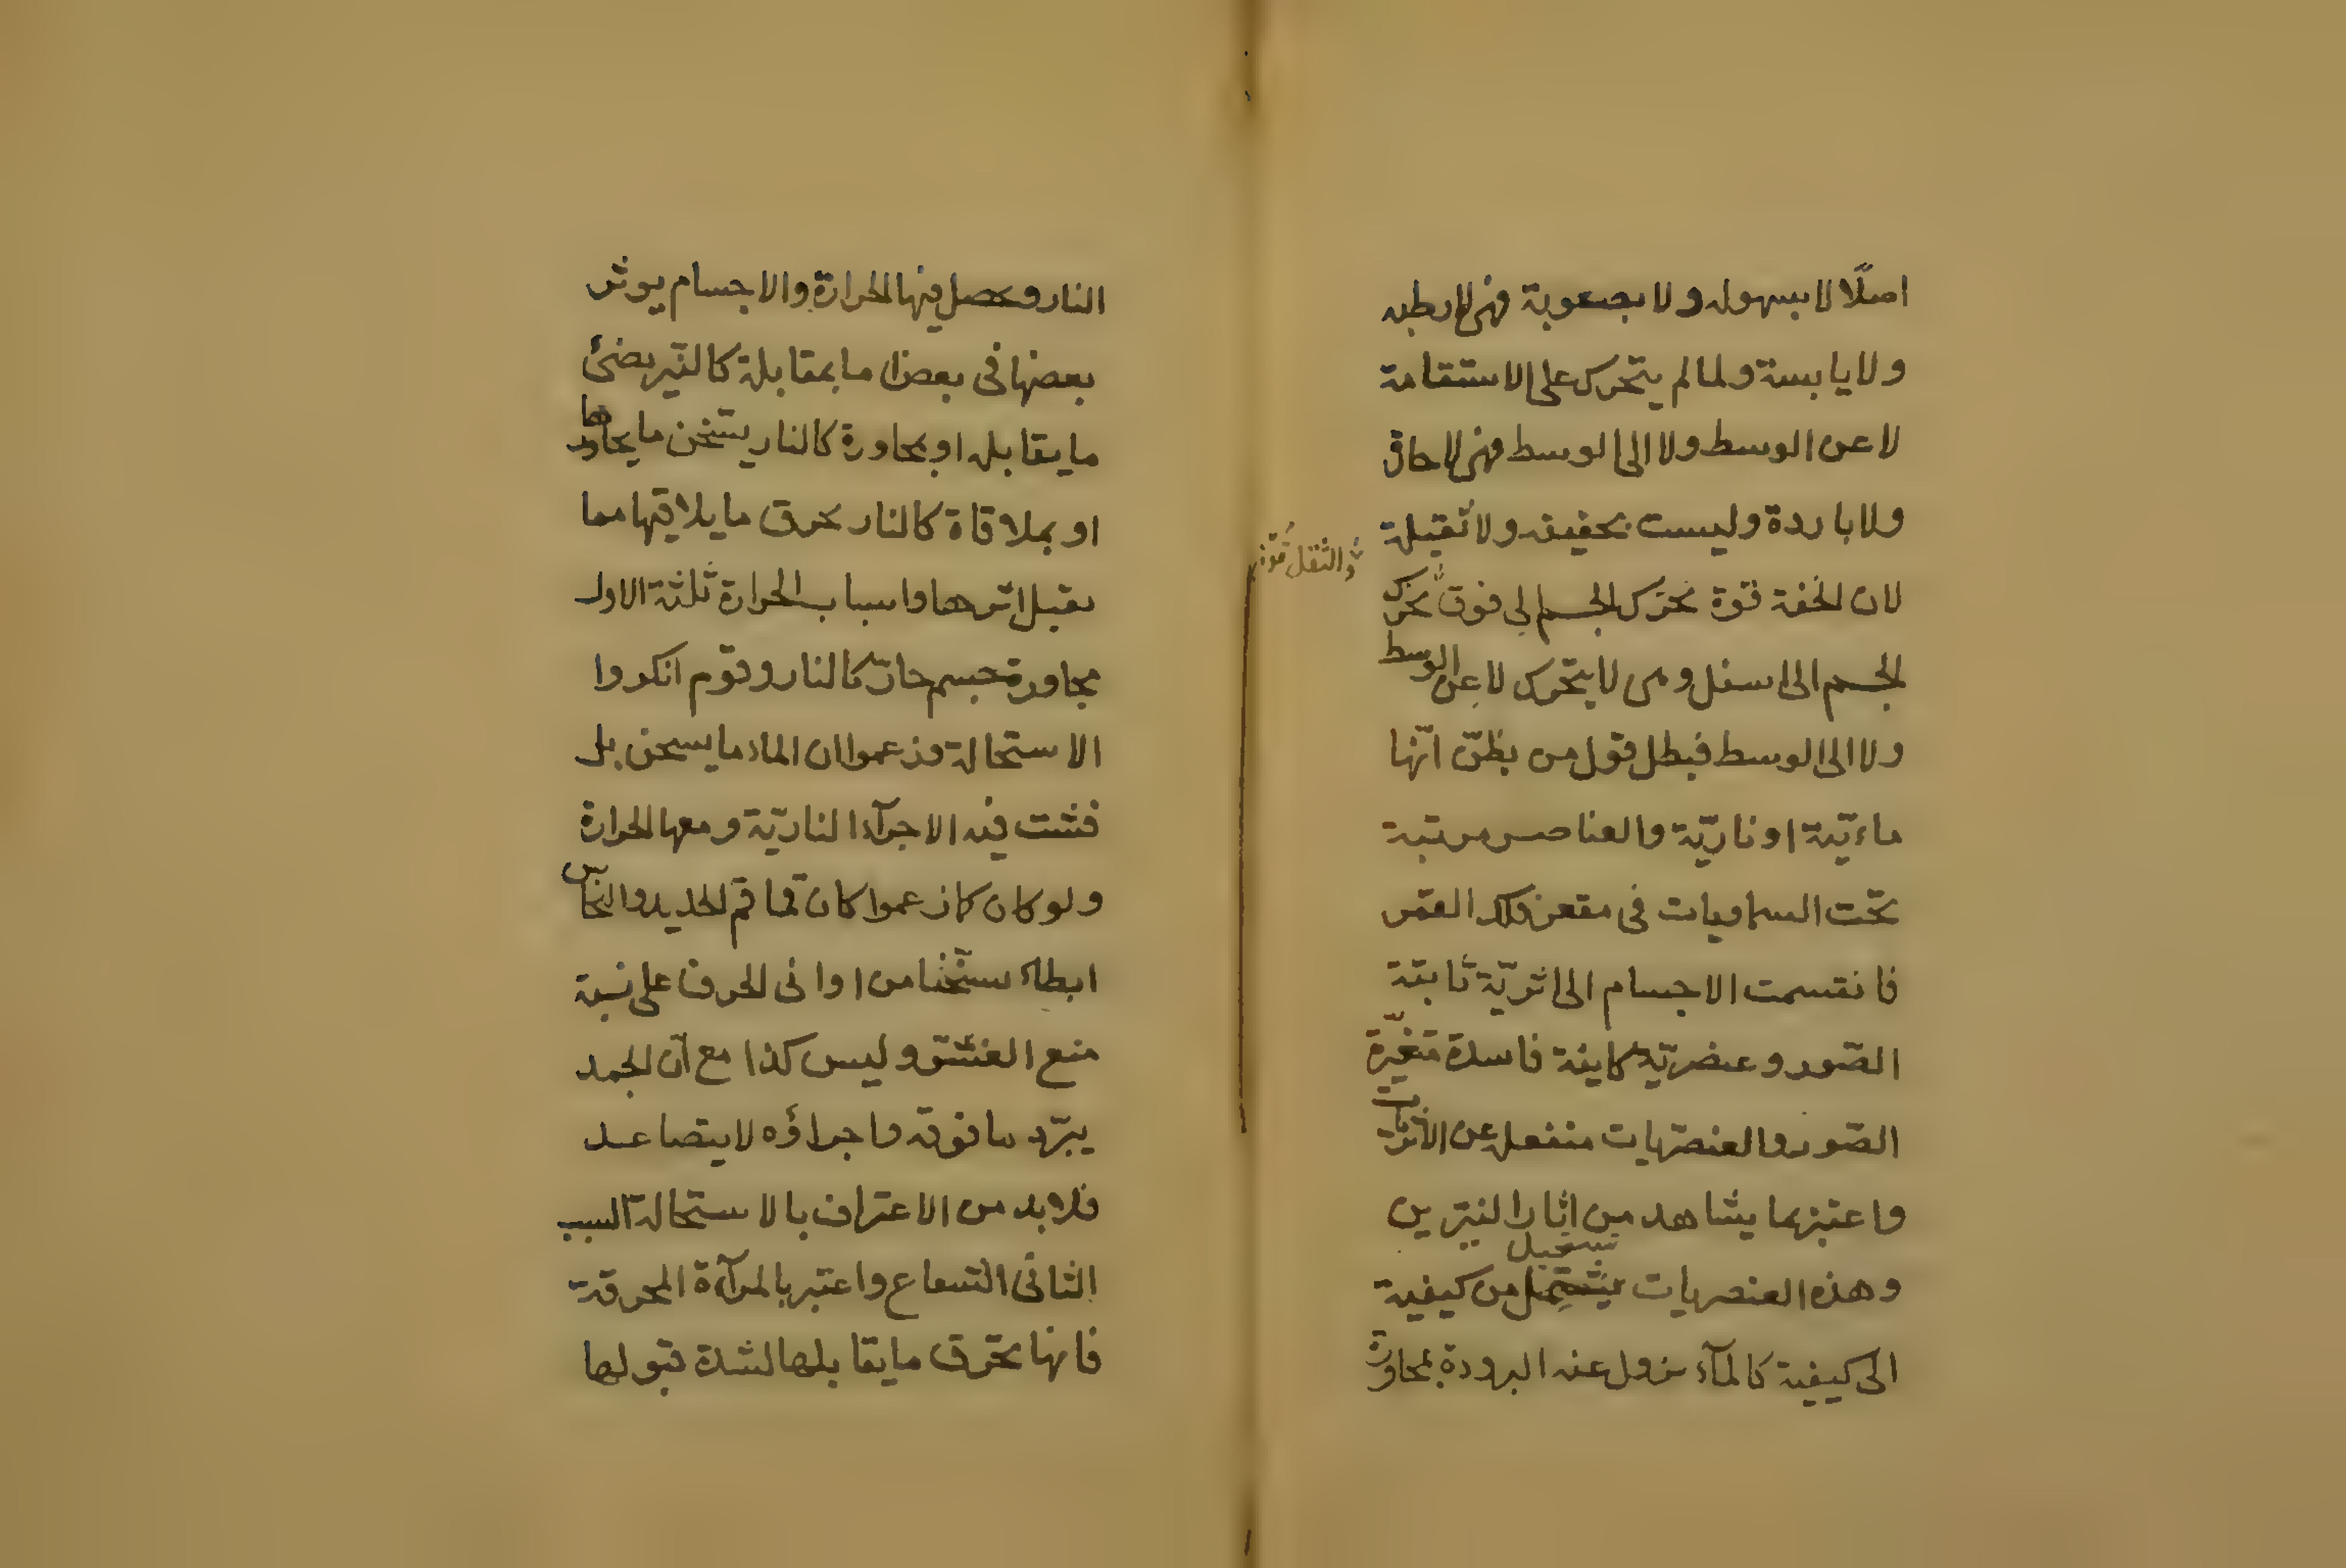 اصلًا لا بسهوله ولا بصعوبة فهى لا رطبه
ولا يابسة ولما لم يتحرك على الاستقامة
لا عن الوسط ولا الى الوسط فهى لا حارة
ولا باردة وليست بخفيفه ولا ثقيلة
لان الخفة قوة تحرّك الجسم الى فوق تحرّك
والثقل قوة
الجسم الى اسفل وهى لا يتحرك لا عن الوسط
ولا الى الوسط فبطل قول من يظنّ انّها
ماءيّة او ناريّة والعناصر مرتبة
تحت السماويات فى مقعر فلك القمر
فانقسمت الاجسام الى اثريّة ثابتة
الصّور وعنصريّة كاينة فاسدة متغيّرة
الصّور والعنصريات منفعلة عن الاثريات
واعتبر بما يشاهد من اثار النيّرين
وهذه العنصريات يستحيل من كيفية
الى كيفية كالمآء يزول عنه البرودة بمجاورة
النار ويحصل فيها الحرارة والاجسام يوثر
بعضها فى بعض اما بمقابلة كالنيّر يضئ
ما يقابله او بمجاورة كالنار يسخن ما يجاورها
او بملاقاة كالنار يحرق ما يلاقيها مما
يقبل اثرها واسباب الحرارة ثلثة الاول
مجاورة جسم حارّ كالنار وقوم انكروا
الاستحالة وزعموا ان الماء ما يسخن بل
فشت فيه الاجزآء الناريّة ومعها الحرارة
ولو كان كما زعموا كان قماقم الحديد والنحاس
ابطاء تسخّنا من اوانى الخزف على نسبة
منع الفشو وليس كذا مع انّ الجمد
يبرّد ما فوقه واجزاؤه لا يتصاعد
فلا بد من الاعتراف بالاستحالة السبب
الثانى الشعاع واعتبر بالمرآة المحرقة
فانها تحرق ما يقابلها لشدة قبولها